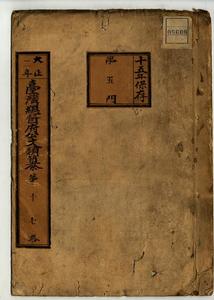 十五年保存
第五門
大正一年
臺灣總督府公文類纂
第十七卷
05609